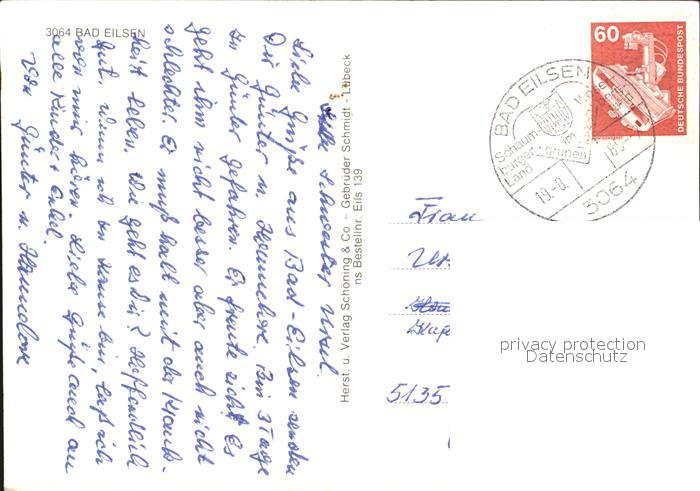 3064 BAD EILSEN
Liebe Schwester Ursul.
Liebe Grüße aus Bad-Eilsen senden
Dir Günter u. Hannelore. Bin 3 Tage
zu Günter gefahren. Er freute sich. Es
geht ihm nicht besser aber auch nicht
schlechter. Er muß halt mit der Krank-
heit leben. Wie geht es Dir? Hoffendlich
gut, wenn ich zu Hause bin, laß ich
von mir hören. Liebe Grüße auch an
alle Kinder + Enkel.
Von
Günter u. Hannelore
Herst. u. Verlag Schöning & Co + Gebrüder Schmidt - Lübeck
ns Bestellnr. Eils 139
60
DEUTSCHE BUNDESPOST
BAD EILSEN
Schaum-
burger
Land
im
grünen
19.-8.
3064
Frau
5135
privacy protection
Datenschutz